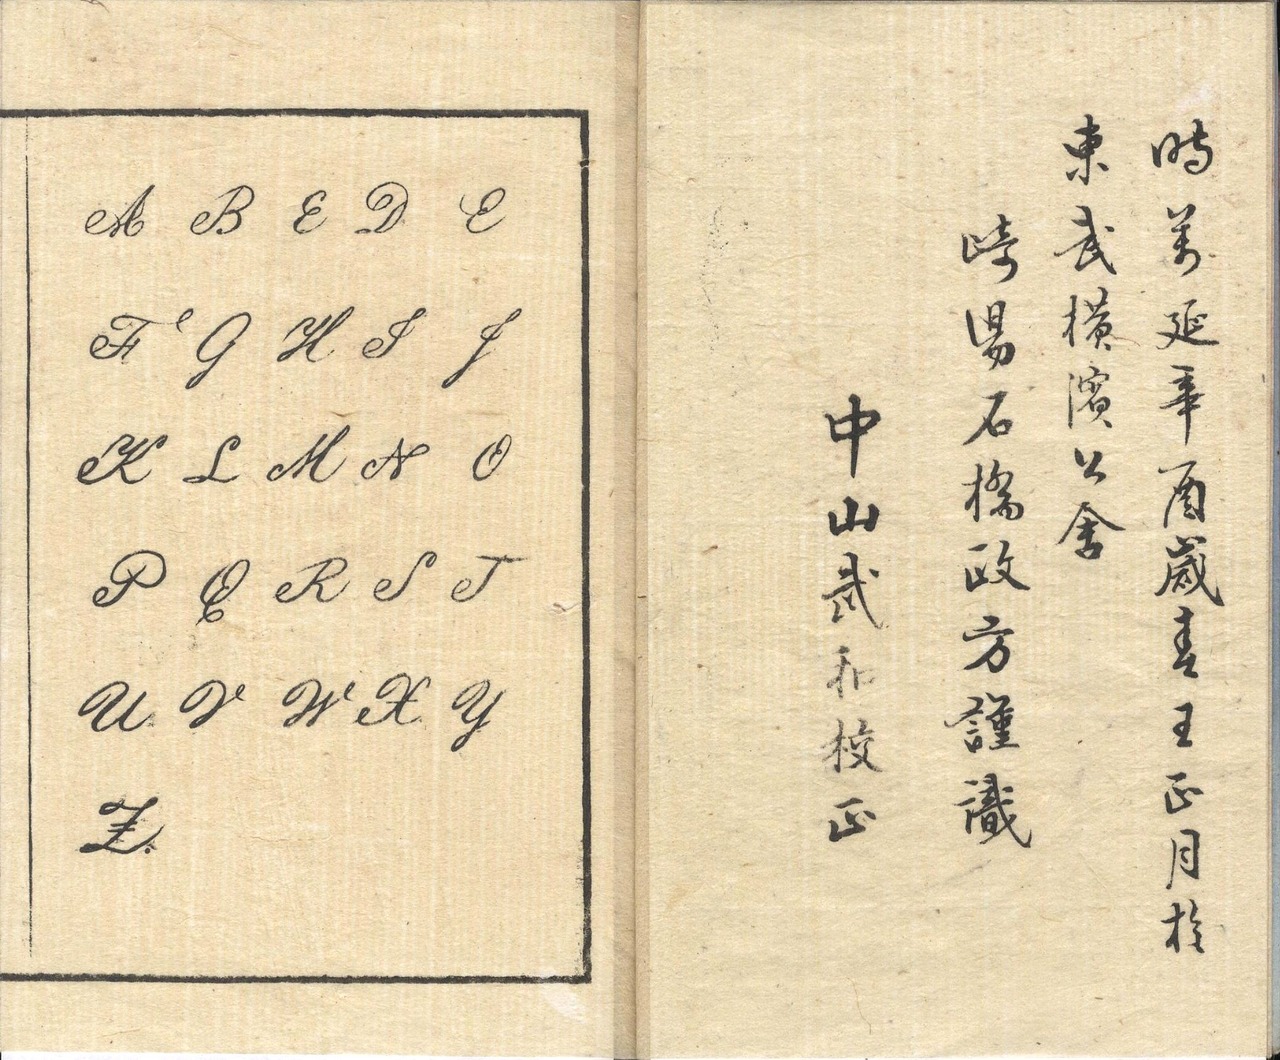 時萬延辛酉歳春王正月於
東武横濱公舎
崎陽石橋政方謹識
中山武和校正
A B C D E
F G H I J
K L M N O
P Q R S T
U V W X Y
Z.